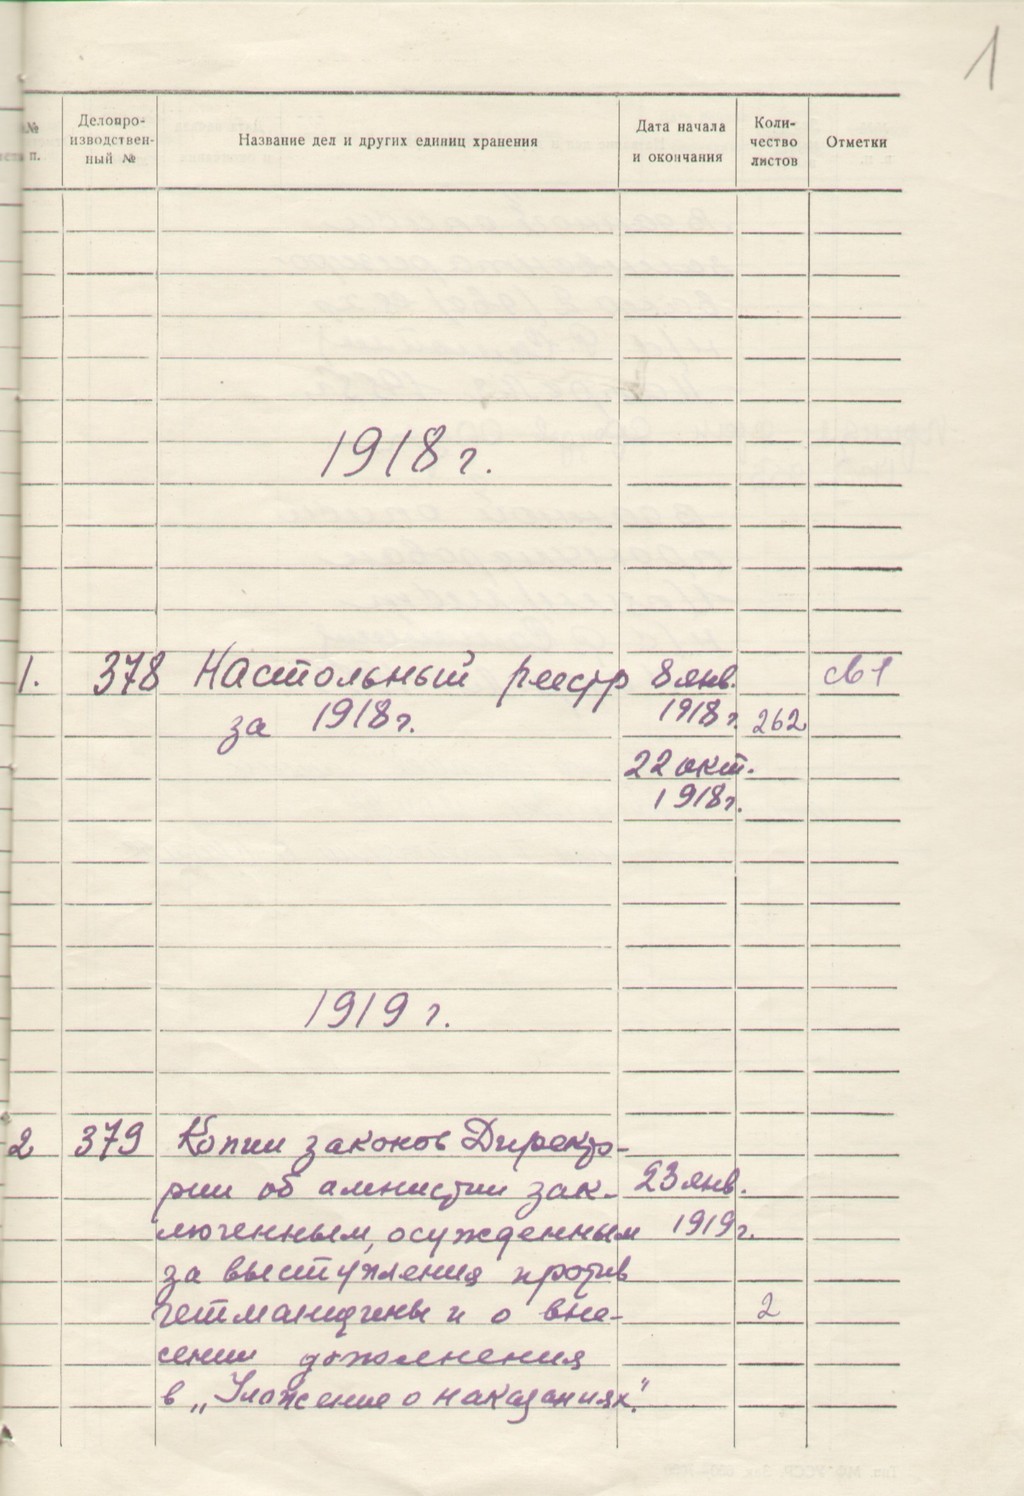 1
№ п.
Делопро-
изводствен-
ный №
Название дел и других единиц хранения
Дата начала
и окончания
Коли-
чество
листов
Отметки
1918 г.
1. 378 Настольный реестр 8 янв. св 1
за 1918 г. 1918 г. 262
22 окт.
1918 г.
1919 г.
2 379 Копии законов Директо-
рии об амнистии зак- 23 янв.
люченным, осужденным 1919 г.
за выступления против
гетманщины и о вне- 2
сении дополнения
в „Уложение о наказаниях".